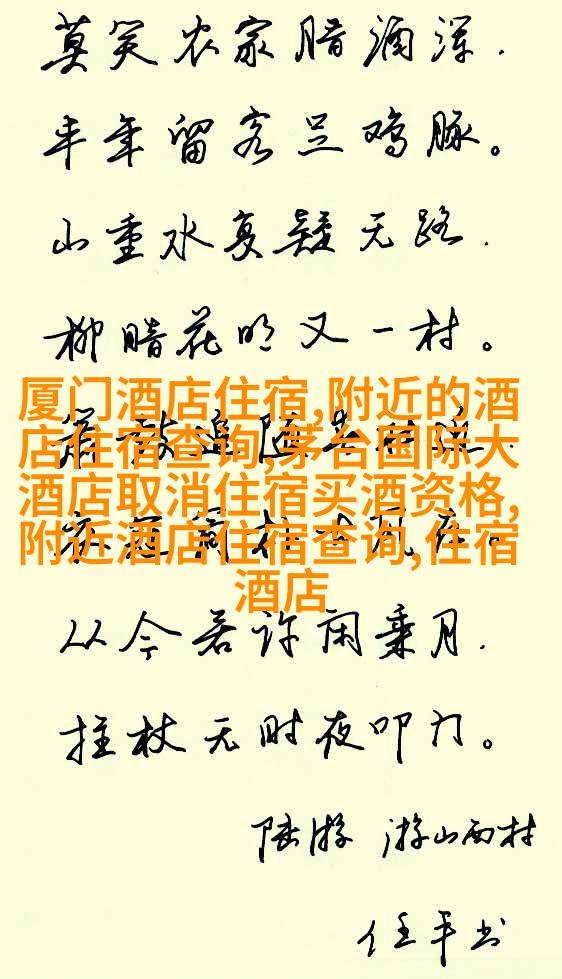 莫笑农家腊酒浑.
丰年留客足鸡豚。
山重水复疑无路.
柳暗花明又一村。
厦门酒店住宿,附近的酒
店住宿查询,茅台国际大
酒店取消住宿买酒资格,
附近酒店住宿查询,住宿
酒店
从今若许闲乘月.
拄杖无时夜叩门。
陆游 游山西村
任平书